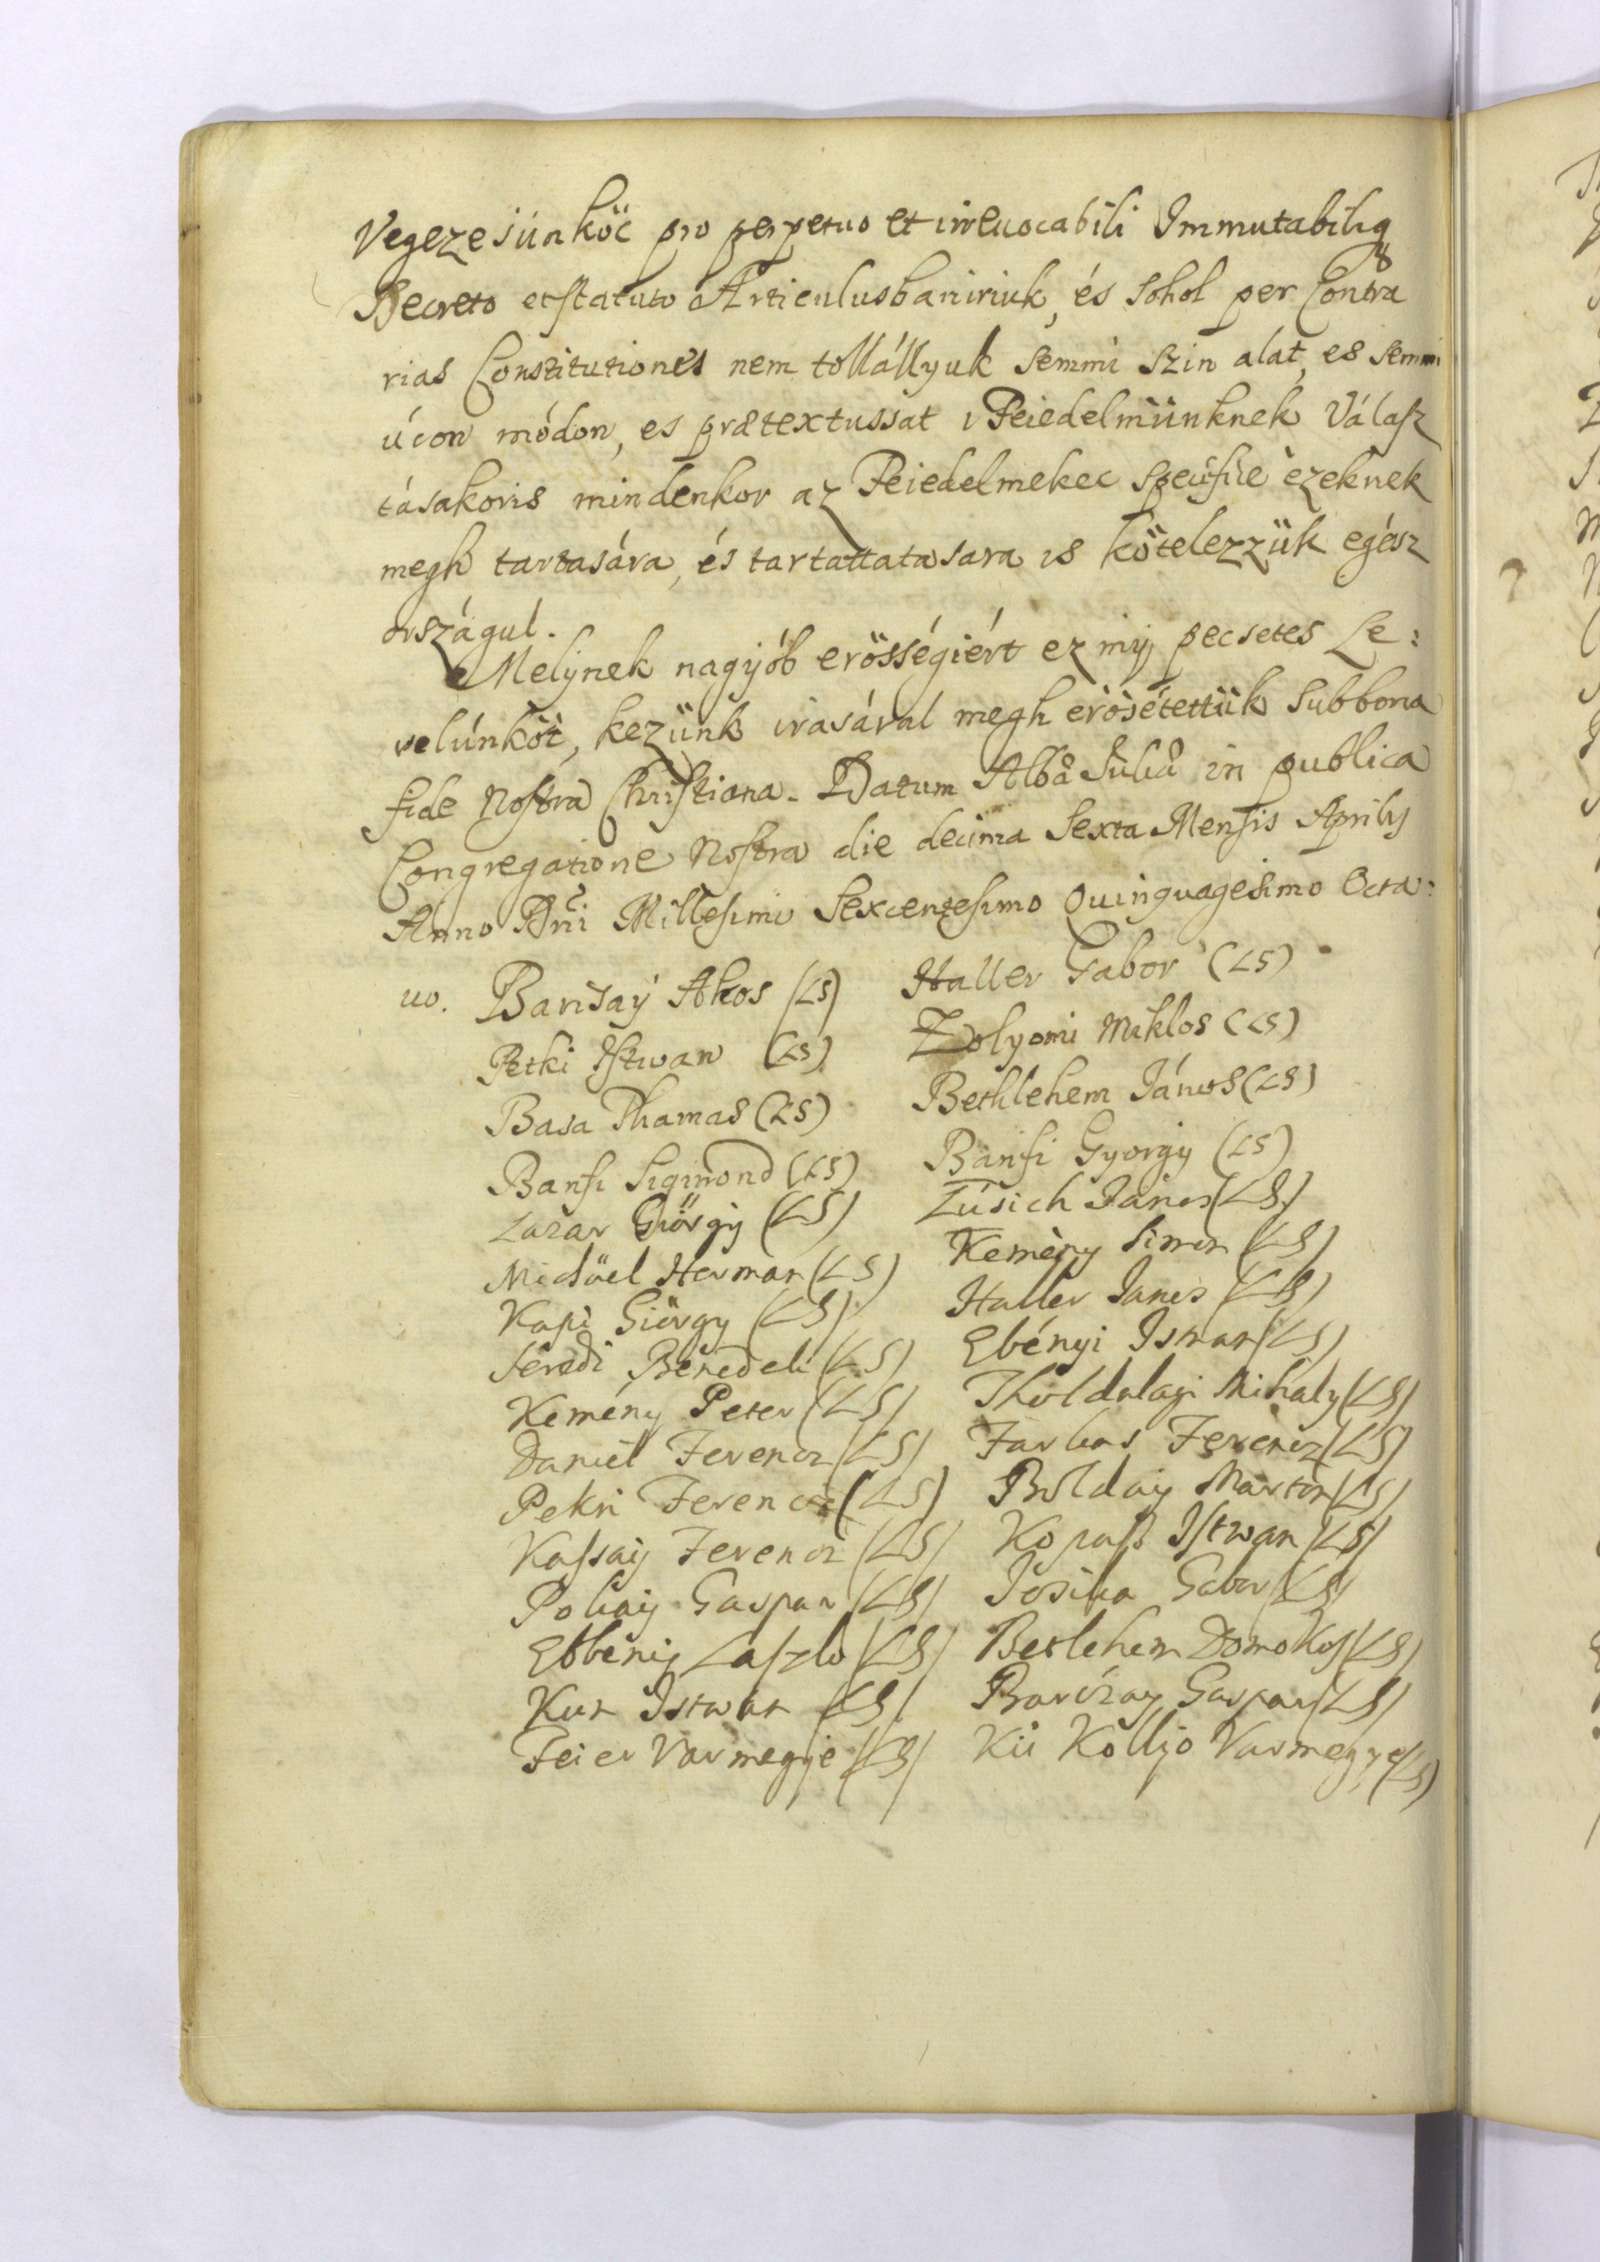 Vegezesúnköc pro perpetuo et irrevocabili Immutabiliq
Decreto et statuto Articulusban iriuk, és sohol per Contra
rias Constitutiones nem tollállyuk semmi szin alat, es semmi
úcon módon, es prætextussat Feiedelmünknek Válasz
tásakoris mindenkor az Feiedelmekec specifice ezeknek
megh tartasára, és tartattatasara is kötelezzük egész
országul.
Melynek nagyób erösségiért ez mÿ pecsetes Le:
velúnköt, kezünk irasával megh erösétettük sub bona
fide Nostra Christiana. Datum Albæ Juliæ in publica
Congregatione Nostra die decima Sexta Mensis Aprilis
Anno Dni Millesimo Sexcentesimo Quinquagesimo Octa:
uo. Barcsaÿ Akos (LS) Haller Gabor (LS)
Petki Istwan (LS) Zolyomi Miklos (LS)
Basa Thamas (LS) Bethlehem János (LS)
Banfi Sigmond (LS) Banfi Gyorgy (LS)
Lazar Giörgÿ (LS) Lúsich János (LS)
Michäel Herman (LS) Kemèny Simon (LS)
Kapi Giörgy (LS) Haller Janos (LS)
Seredi Benedek (LS) Ebényi Istwan (LS)
Kemény Peter (LS) Tholdalagi Mihaly (LS)
Daniel Ferencz (LS) Farkas Ferencz (LS)
Pekri Ferencz (LS) Boldaÿ Marton (LS)
Kassaÿ Ferencz (LS) Kopass Istwan (LS)
Pokaÿ Gaspar (LS) Josika Gabor (LS)
Ebbeniÿ Laszlo (LS) Betlehem Domokos (LS)
Kun Istwan (LS) Barczaÿ Gaspar (LS)
Feier Varmegÿe (LS) Kü Kölljö Varmegye (LS)